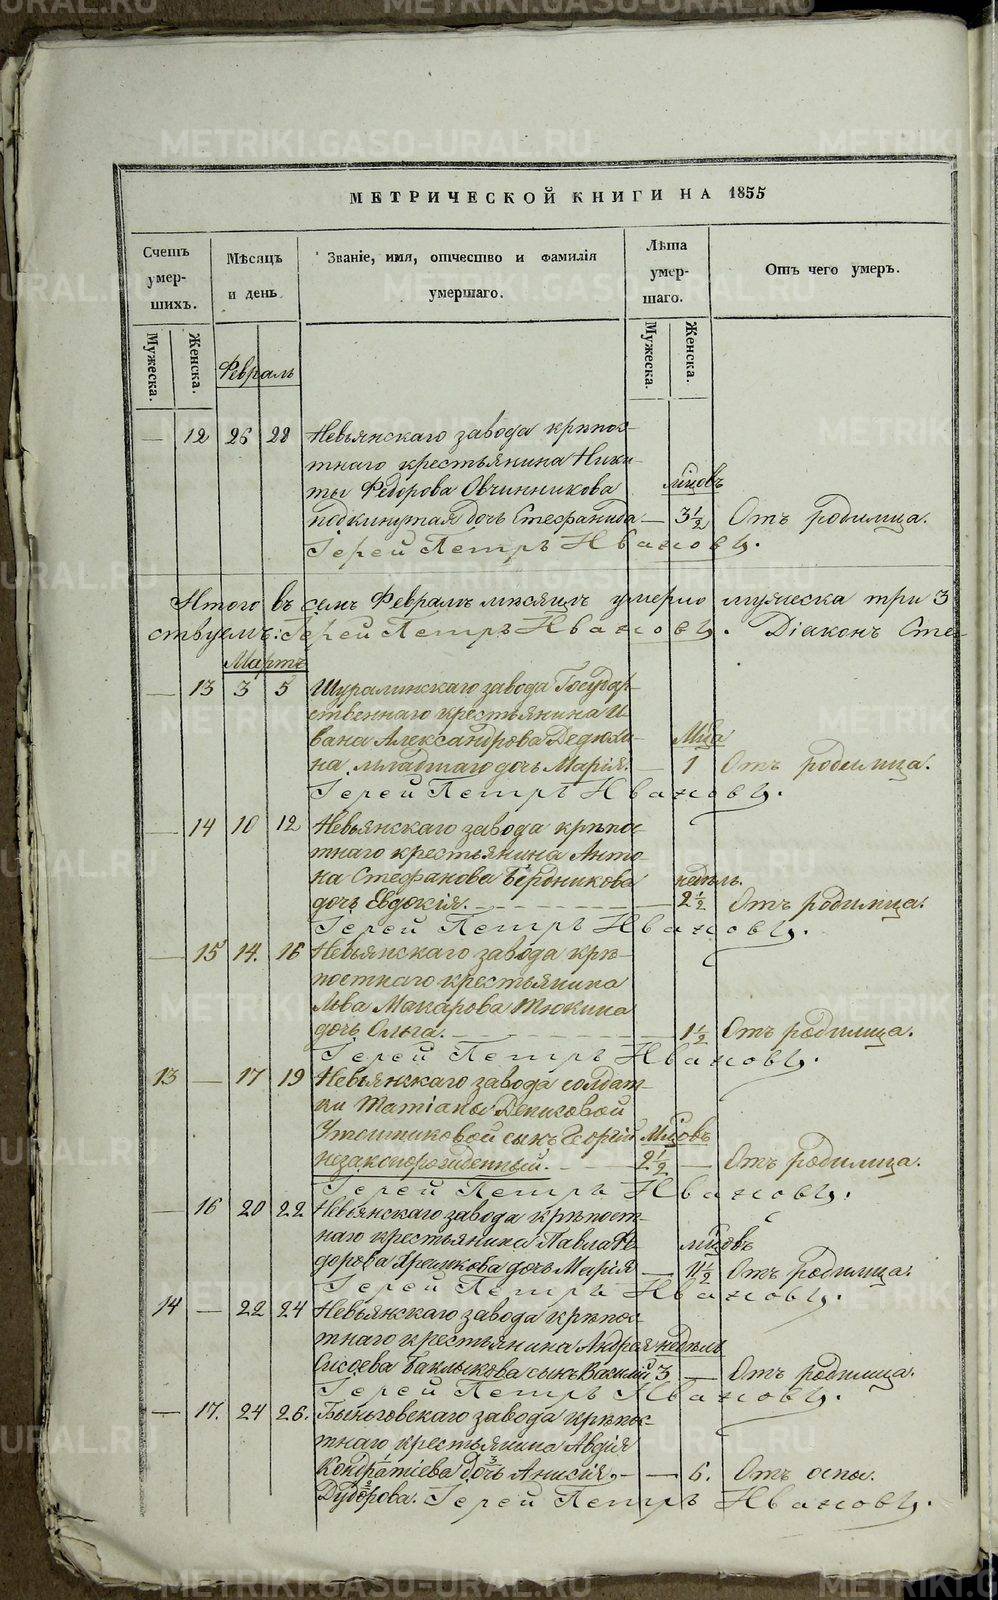 МЕТРИЧЕСКОЙ КНИГИ НА 1855
Счетъ умершихъ.
Мѣсяцъ и день
Званіе, имя, отчество и фамилія умершаго.
Лѣта умершаго.
Отъ чего умеръ.
Мужеска. Женска.
Мужеска. Женска.
Февраль
— 12 26 28 Невьянскаго завода крѣпос-
тнаго крестьянина Ники-
ты Федорова Овчинникова мцовъ
подкинутая дочь Стефанида — 3½ Отъ родимца.
Іерей Петръ Ивановъ.
Итого въ семъ Февралѣ мѣсяцѣ умерло мужеска три 3
ствуемъ: Іерей Петръ Ивановъ. Діаконъ Сте-
Мартъ
— 13 3 5 Шуралинскаго завода Государ-
ственнаго крестьянина И-
вана Александрова Дедюхи- Мца
на младшаго дочь Марія. — 1 Отъ родимца.
Іерей Петръ Ивановъ.
— 14 10 12 Невьянскаго завода крѣпос-
тнаго крестьянина Анто-
на Стефанова Бердникова недѣль.
дочь Евдокія. — 2½ Отъ родимца.
Іерей Петръ Ивановъ.
— 15 14. 16 Невьянскаго завода крѣ-
постнаго крестьянина
Льва Макарова Тюкина
дочь Ольга. — 1½ Отъ родимца.
Іерей Петръ Ивановъ.
13 — 17 19 Невьянскаго завода солдат-
ки Татіаны Денисовой
сынъ Георгій Мцовъ
незаконорожденный. 2½ — Отъ родимца.
Іерей Петръ Ивановъ.
— 16 20 22 Невьянскаго завода крѣпост-
наго крестьянина Павла Фе- мцовъ
дорова дочь Марія — Отъ родимца.
Іерей Петръ Ивановъ.
14 — 22 24 Невьянскаго завода крѣпос-
тнаго крестьянина Андрея недѣль
Сысоева Баклыкова сынъ Василій 3 — Отъ родимца.
Іерей Петръ Ивановъ.
— 17. 24 26. Быньговскаго завода крѣпос-
тнаго крестьянина Авдія
Кондратіева дочь Анисія. — 6. Отъ оспы.
Дудорова. Іерей Петръ Ивановъ.
METRIKI.GASO-URAL.RU